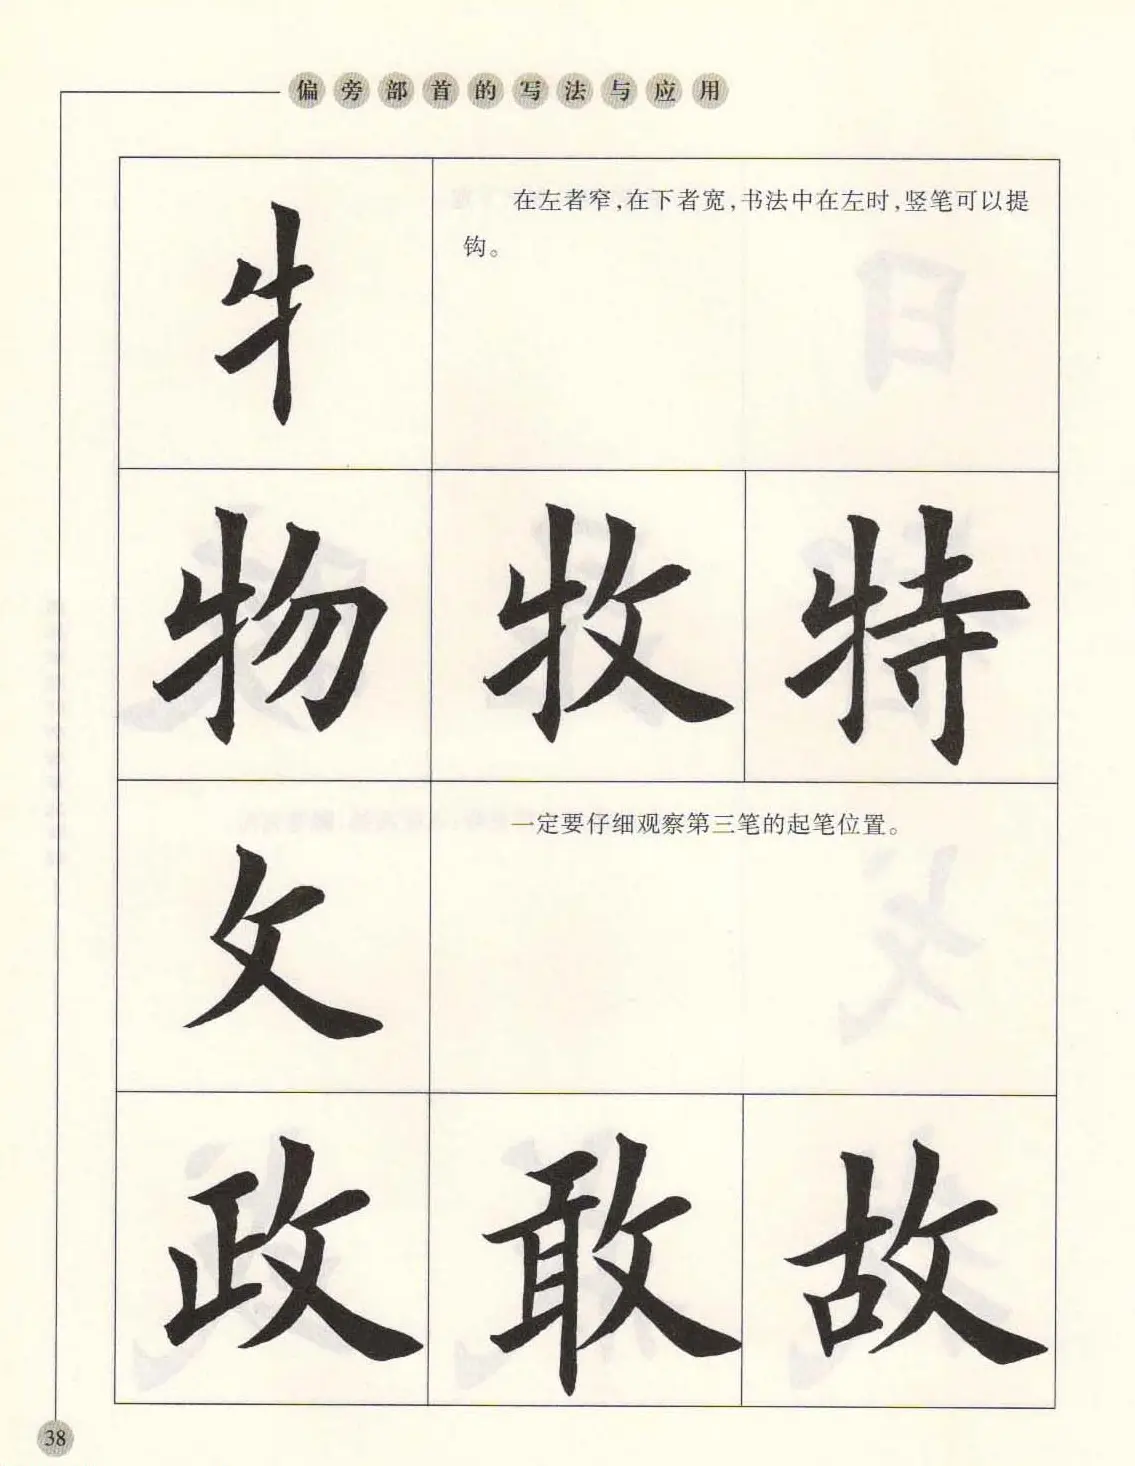 偏旁部首的写法与应用
牜
在左者窄，在下者宽，书法中在左时，竖笔可以提
钩。
物 牧 特
攵
一定要仔细观察第三笔的起笔位置。
政 敢 故
38